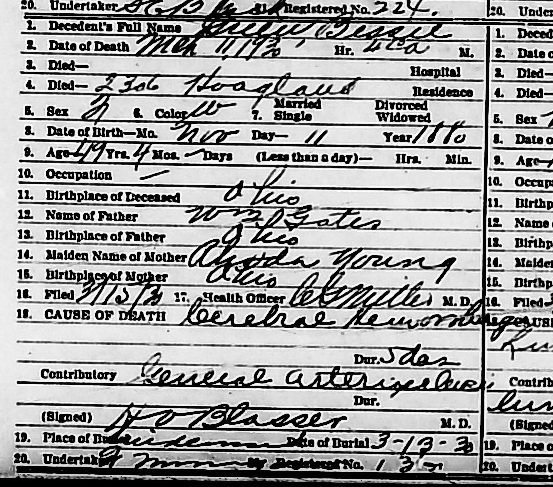 20. Undertaker 21. Registered No. 224. 20. Under
1. Decedent's Full Name Bessie 1. Deced
2. Date of Death Mch 11, 1930 Hr. M. 2. Date o
3. Died— Hospital 3. Died—
4. Died—2306 Hoagland Residence 4. Died—
5. Sex F 6. Color W 7. Married Single Divorced Widowed 5. Sex
8. Date of Birth—Mo. Nov Day— 11 Year 1880 8. Date o
9. Age 49 Yrs. 4 Mos. — Days (Less than a day)— Hrs. Min. 9. Age
10. Occupation — 10. Occup
11. Birthplace of Deceased Ohio 11. Birthp
12. Name of Father Wm Gates 12. Name
13. Birthplace of Father Ohio 13. Birthp
14. Maiden Name of Mother Rhoda Young 14. Maide
15. Birthplace of Mother Ohio 15. Birthp
16. Filed 3/15/30 17. Health Officer Miller M. D. 16. Filed
18. CAUSE OF DEATH Cerebral Hemorrhage
Dur. 5 das
Contributory General Arteriosclerosis Contrib
Dur.
(Signed) H O Blasser M. D. (Signed
19. Place of Burial Date of Burial 3-13-30 19. Place
20. Undertaker Registered No. 20. Under